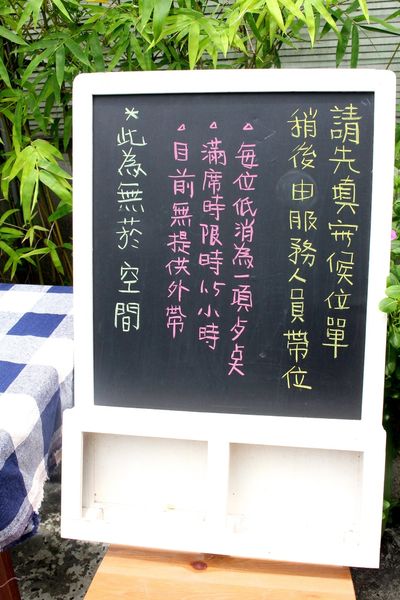 請先填寫候位單
稍後由服務人員帶位
△每位低消為一項歺点
△滿席時限時1.5小時
△目前無提供外帶
*此為無菸空間